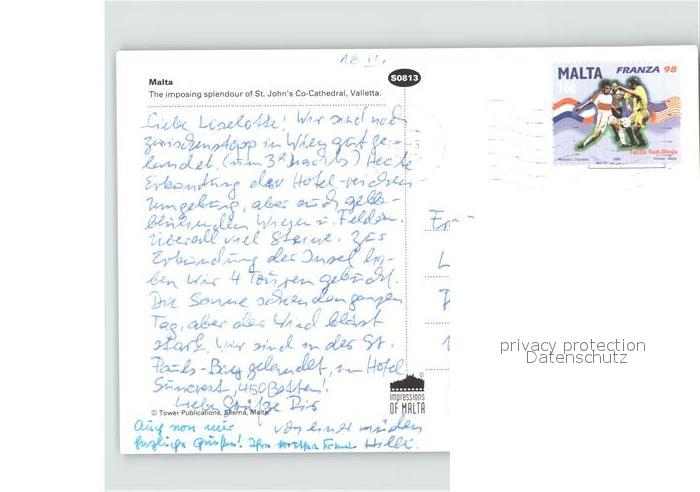 16. II.
S0813
Malta
The imposing splendour of St. John's Co-Cathedral, Valletta.
MALTA FRANZA 98
16c
Liebe Liselotte! Wir sind nach
Zwischenstopp in Wien gut ge-
landet. (um 3h nachts) Heute
Erkundung der Hotel-reichen
Umgebung, aber auch gelb-
blühenden Wiesen u. Felder.
Überall viel Steine. Zur
Erkundung der Insel ha-
ben wir 4 Touren gebucht.
Die Sonne schien den ganzen
Tag, aber der Wind bläst
stark. Wir sind in der St.
Pauls-Bay gelandet, im Hotel
Suncrest, 450 Betten!
Liebe Grüße Dir
von einer müden
Hilli.
Auch von mir
herzliche Grüße! Ihre
© Tower Publications, Sliema, Malta.
impressions
OF MALTA
privacy protection
Datenschutz